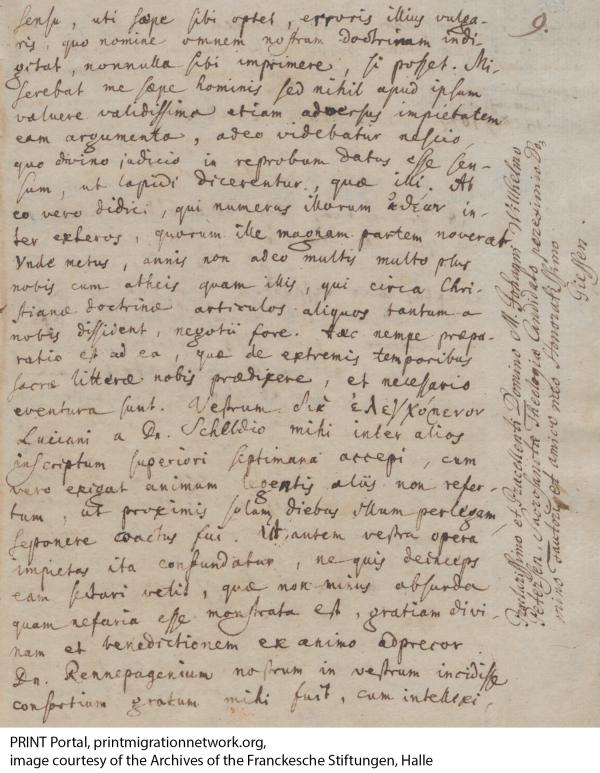 sensu, uti sæpe sibi optet, erroris illius vulga-
ris, quo nomine omnem nostram doctrinam indi-
gitat, nonnulla sibi imprimere, si posset. Mi-
serebat me sæpe hominis sed nihil apud ipsum
valuere validissima etiam adversus impietatem
eam argumenta, adeo videbatur nescio
quo divino judicio in reprobum datus esse sen-
sum, ut lapidi dicerentur, quæ illi. At
eo vero didici, qui numerus illorum ἀθέων in-
ter exteros, quorum ille magnam partem noverat
Vnde metus, annis non adeo multis multo plus
nobis cum atheis quam illis, qui circa Chri-
stianæ doctrinæ articulos aliquos tantum a
nobis dissident, negotii fore. Hæc nempe præpa-
ratio est ad ea, quæ de extremis temporibus
sacræ litteræ nobis prædixere, et necessario
eventura sunt. Vestrum ἐλεγχόμενον
Luciani a Dn. Scheldio mihi inter alios
inscriptum superiori septimana accepi, cum
vero exigat animum legentis aliis non refer-
tum, ut proximis solum diebus illum perlegam,
seponere coactus fui. Ut autem vestra opera
impietas ita confundatur, ne quis deinceps
eam sectari velit, quæ non minus absurda
quam nefaria esse monstrata est, gratiam divi-
nam et benedictionem ex animo adprecor.
Dn. Rennepagenium nostrum in vestrum incidisse
consortium gratum mihi fuit, cum intellexi,
9.
Præclarissimo et Præcellenti Domino M. Johanni Wilhelmo
Petersen, Sacrosanctæ Theologiæ Candidato
mino Fautori et amico meo Honoratissimo
Giessen.
PRINT Portal, printmigrationnetwork.org,
image courtesy of the Archives of the Franckesche Stiftungen, Halle